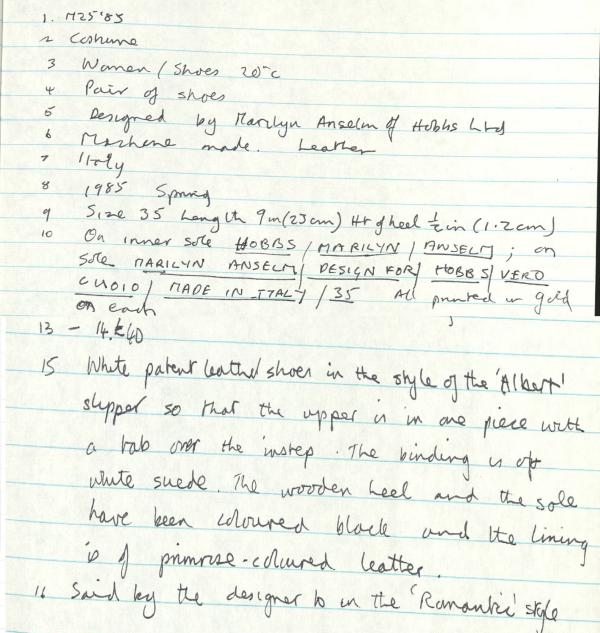 1. M25'85
2 Costume
3 Women / Shoes 20thc
4 Pair of shoes
5 Designed by Marilyn Anselm of Hobbs Ltd
6 Machine made. Leather
7 Italy
8 1985 Spring
9 Size 35 Length 9in (23cm) Ht of heel ½in (1.2cm)
10 On inner sole HOBBS / MARILYN / ANSELM ; on
sole MARILYN ANSELM / DESIGN FOR / HOBBS / VERO
CUOIO / MADE IN ITALY / 35 All printed in gold
on each
13 - 14. £40
15 White patent leather shoes in the style of the 'Albert'
slipper so that the upper is in one piece with
a tab over the instep. The binding is of
white suede. The wooden heel and the sole
have been coloured black and the lining
is of primrose-coloured leather.
16 Said by the designer to in the 'Romantic' style